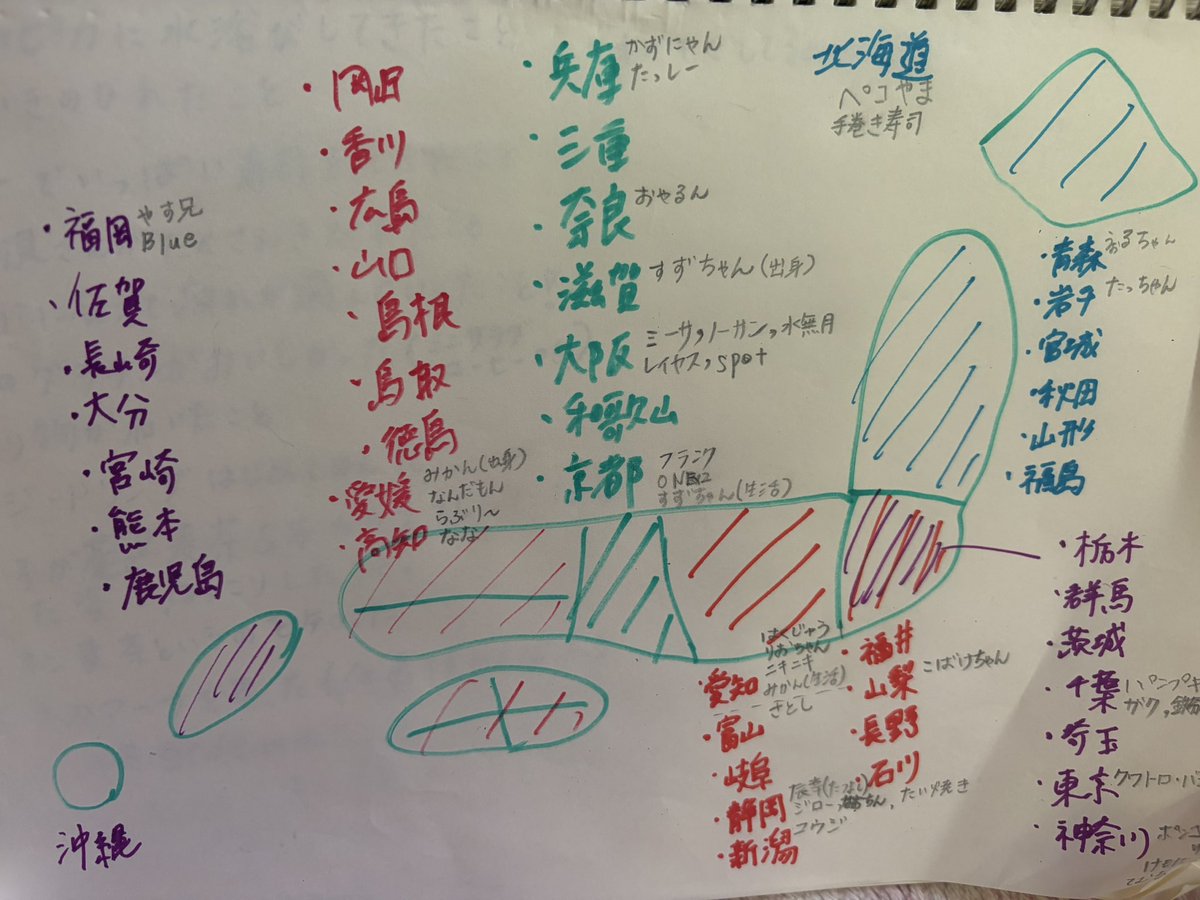 北海道
ペコやま
手巻き寿司
・青森
・岩手 たっちゃん
・宮城
・秋田
・山形
・福島
・兵庫 かずにゃん
たっしー
・三重
・奈良 おやるん
・滋賀 すずちゃん(出身)
・大阪 ミーサ,ノーサン,水無月
レイヤス,spot
・和歌山
・京都 フランク
すずちゃん(生活)
・岡山
・香川
・広島
・山口
・島根
・鳥取
・徳島
・愛媛 みかん(出身)
なんだもん
らぶり〜
・高知 なな
・福岡 やす兄
Blue
・佐賀
・長崎
・大分
・宮崎
・熊本
・鹿児島
沖縄
・愛知 はくじゅう
りおちゃん
ニキニキ
みかん(生活)
さとし
・富山
・岐阜
・静岡 辰幸(たつよし)
ジロー, たい焼き
コウジ
・新潟
・福井
・山梨 こばけちゃん
・長野
・石川
・栃木
・群馬
・茨城
・千葉
・埼玉
・東京 クワトロ
・神奈川